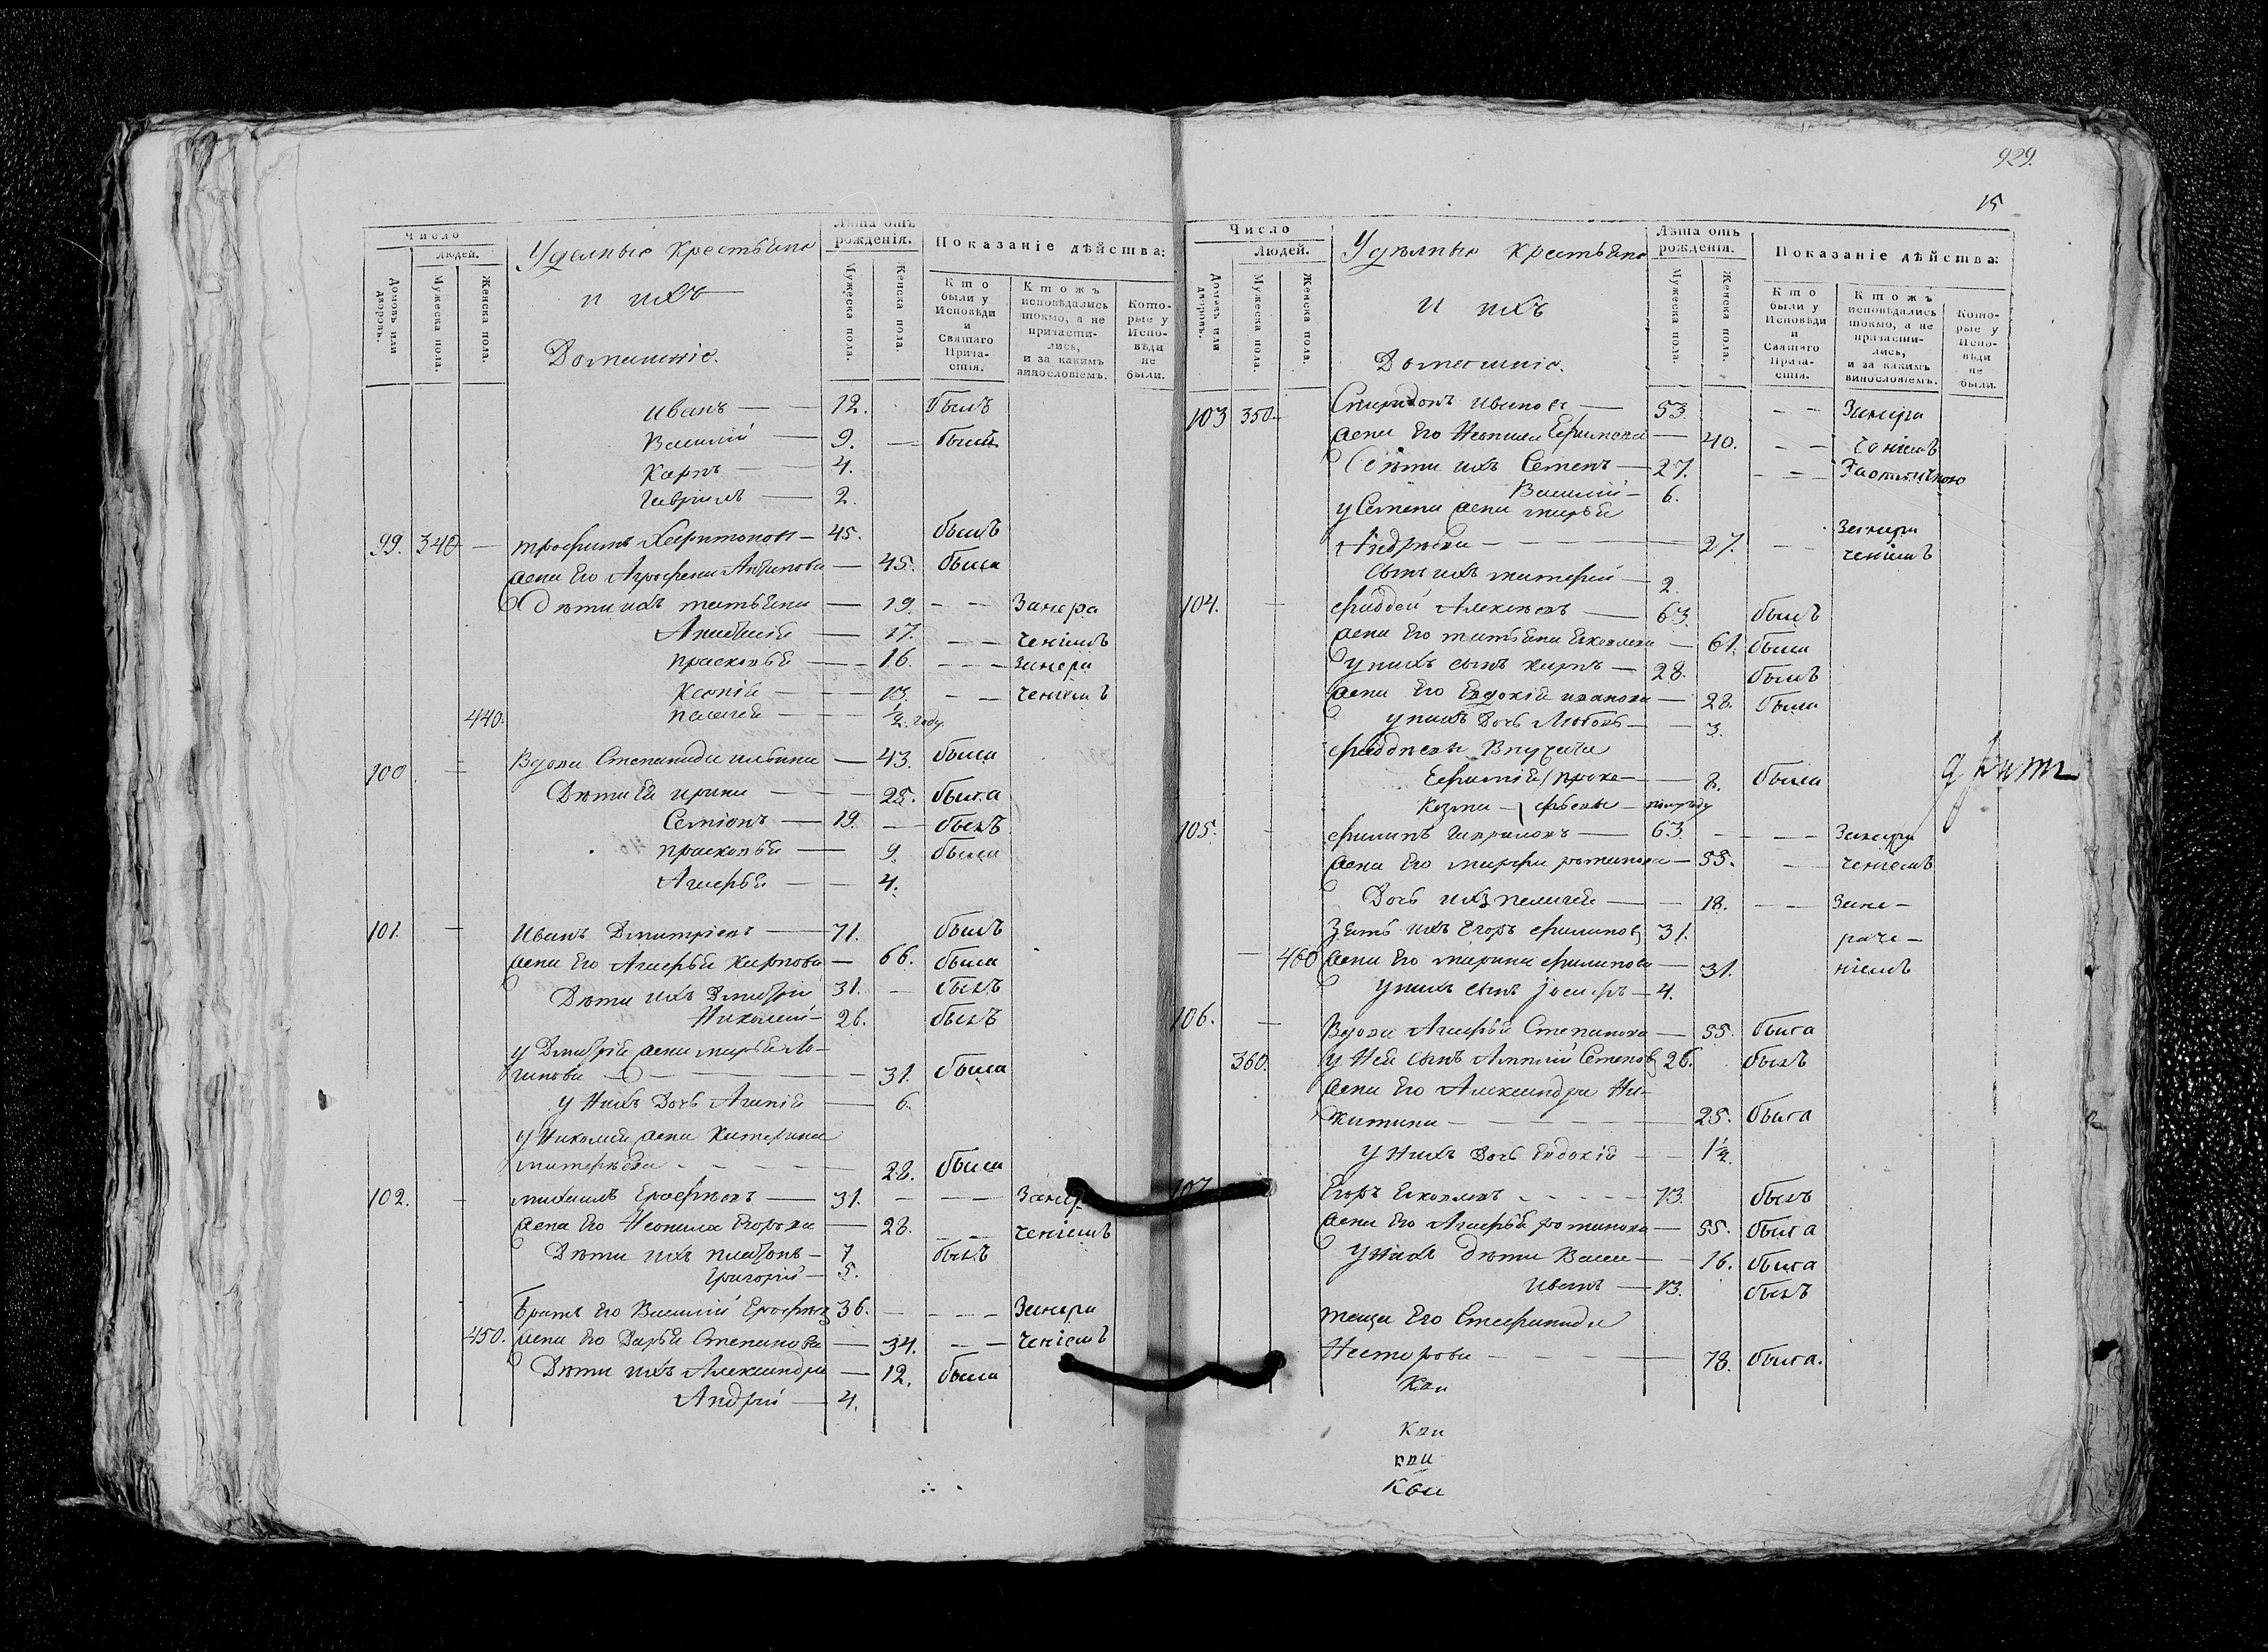 Число
Людей.
Домовъ или дворовъ.
Мужеска пола.
Женска пола.
Уделныя Крестьяне
и ихъ
Домашніе.
Лѣта отъ рожденія.
Мужеска пола.
Женска пола.
Показаніе дѣйства:
Кто были у Исповѣди и Святаго Причастія.
Ктожъ исповѣдались токмо, а не причастились, и за какимъ винословіемъ.
Которые у Исповѣди не были.
Иванъ — 12. былъ
Василий — 9. — былъ
Карпъ — 4.
Гаврилъ — 2.
99. 340 — трофимъ Харитоновъ — 45. былъ
жена Его Агрофена Антипова — 45. была
Дѣти ихъ татьяна — 19. — — Занера
Анастасия — 17. — — ченіемъ
прасковья — 16. — — занера
Ксения — 13. — — ченіемъ
440. пелагея — ½ году.
100. — Вдова Степанида ильина — 43. была
Дѣти Ей ирина — 25. была
Семионъ — 19. — былъ
прасковья — 9. была
Агафья — 4.
101. — Иванъ Дмитріевъ — 71. былъ
жена Его Агафья Карпова — 66. была
Дѣти ихъ Дмитрій 31. — былъ
Николай — 26. былъ
у Дмитрія жена марья Ло-
гинова — 31. была
у Нихъ Дочь Агапія — 6.
у Николая жена Катерина
матвѣева — 28. была
102. — михаилъ Ерофѣевъ — 31. — — Занер
жена Его Неонила Егорова — 28. — — ченіемъ
Дѣти ихъ платонъ — 7 былъ
Григорій — 5.
братъ Его Василий Ерофѣев 36. — — Занера
450. жена Его Дарья Степанова — 34. — — ченіемъ
Дѣти ихъ Александра — 12. была
Андрей — 4.
929.
15
Число
Людей.
Домовъ или дворовъ.
Мужеска пола.
Женска пола.
Удѣлныя крестьяне
и ихъ
Домашніе.
Лѣта отъ рожденія.
Мужеска пола.
Женска пола.
Показаніе дѣйства:
Кто были у Исповѣди и Святаго Причастія.
Ктожъ исповѣдались токмо, а не причастились, и за какимъ винословіемъ.
Которые у Исповѣди не были.
103 350 — Спиридонъ ивановъ — 53. — — Занера
жена Его Неонила Ефимова — 40. — — ченіемъ
Дѣти ихъ Семенъ — 27. — — Заотлучкою
Василий — 6.
у Семена жена марья
Андрѣева — 27. — — Занера
ченіемъ
сынъ ихъ матфей — 2.
104. — фаддей Алексѣевъ — 63. былъ
жена Его татьяна — 61. была
у нихъ сынъ карпъ — 28. былъ
жена Его Евдокія иванова — 28. была
у нихъ Дочь Любовь — 3.
фаддѣевы Внучата
Ефимия — 8. была
Козма — полугоду
105. — филипъ Гавриловъ — 63. — — Занера
жена Его марфа романова — 55. — ченіемъ
Дочь ихъ пелагея — 18. — — Зане-
Зять ихъ Егоръ филипов 31. раче-
— 460 жена Его марина филипова — 31. ніемъ
у нихъ сынъ Іосифъ — 4.
106. — Вдова Агафья Степанова — 55. была
360. у Ней сынъ Семенов 26. былъ
жена Его Александра Ни-
китина — 25. была
у Нихъ Дочь Евдокія — 1½.
107. Егоръ — 73. былъ
жена Его Агафья романова — 55. была
у Нихъ дѣти Васса — 16. была
Иванъ — 13. былъ
теща Его Стефанида
Нестерова — 78. была.